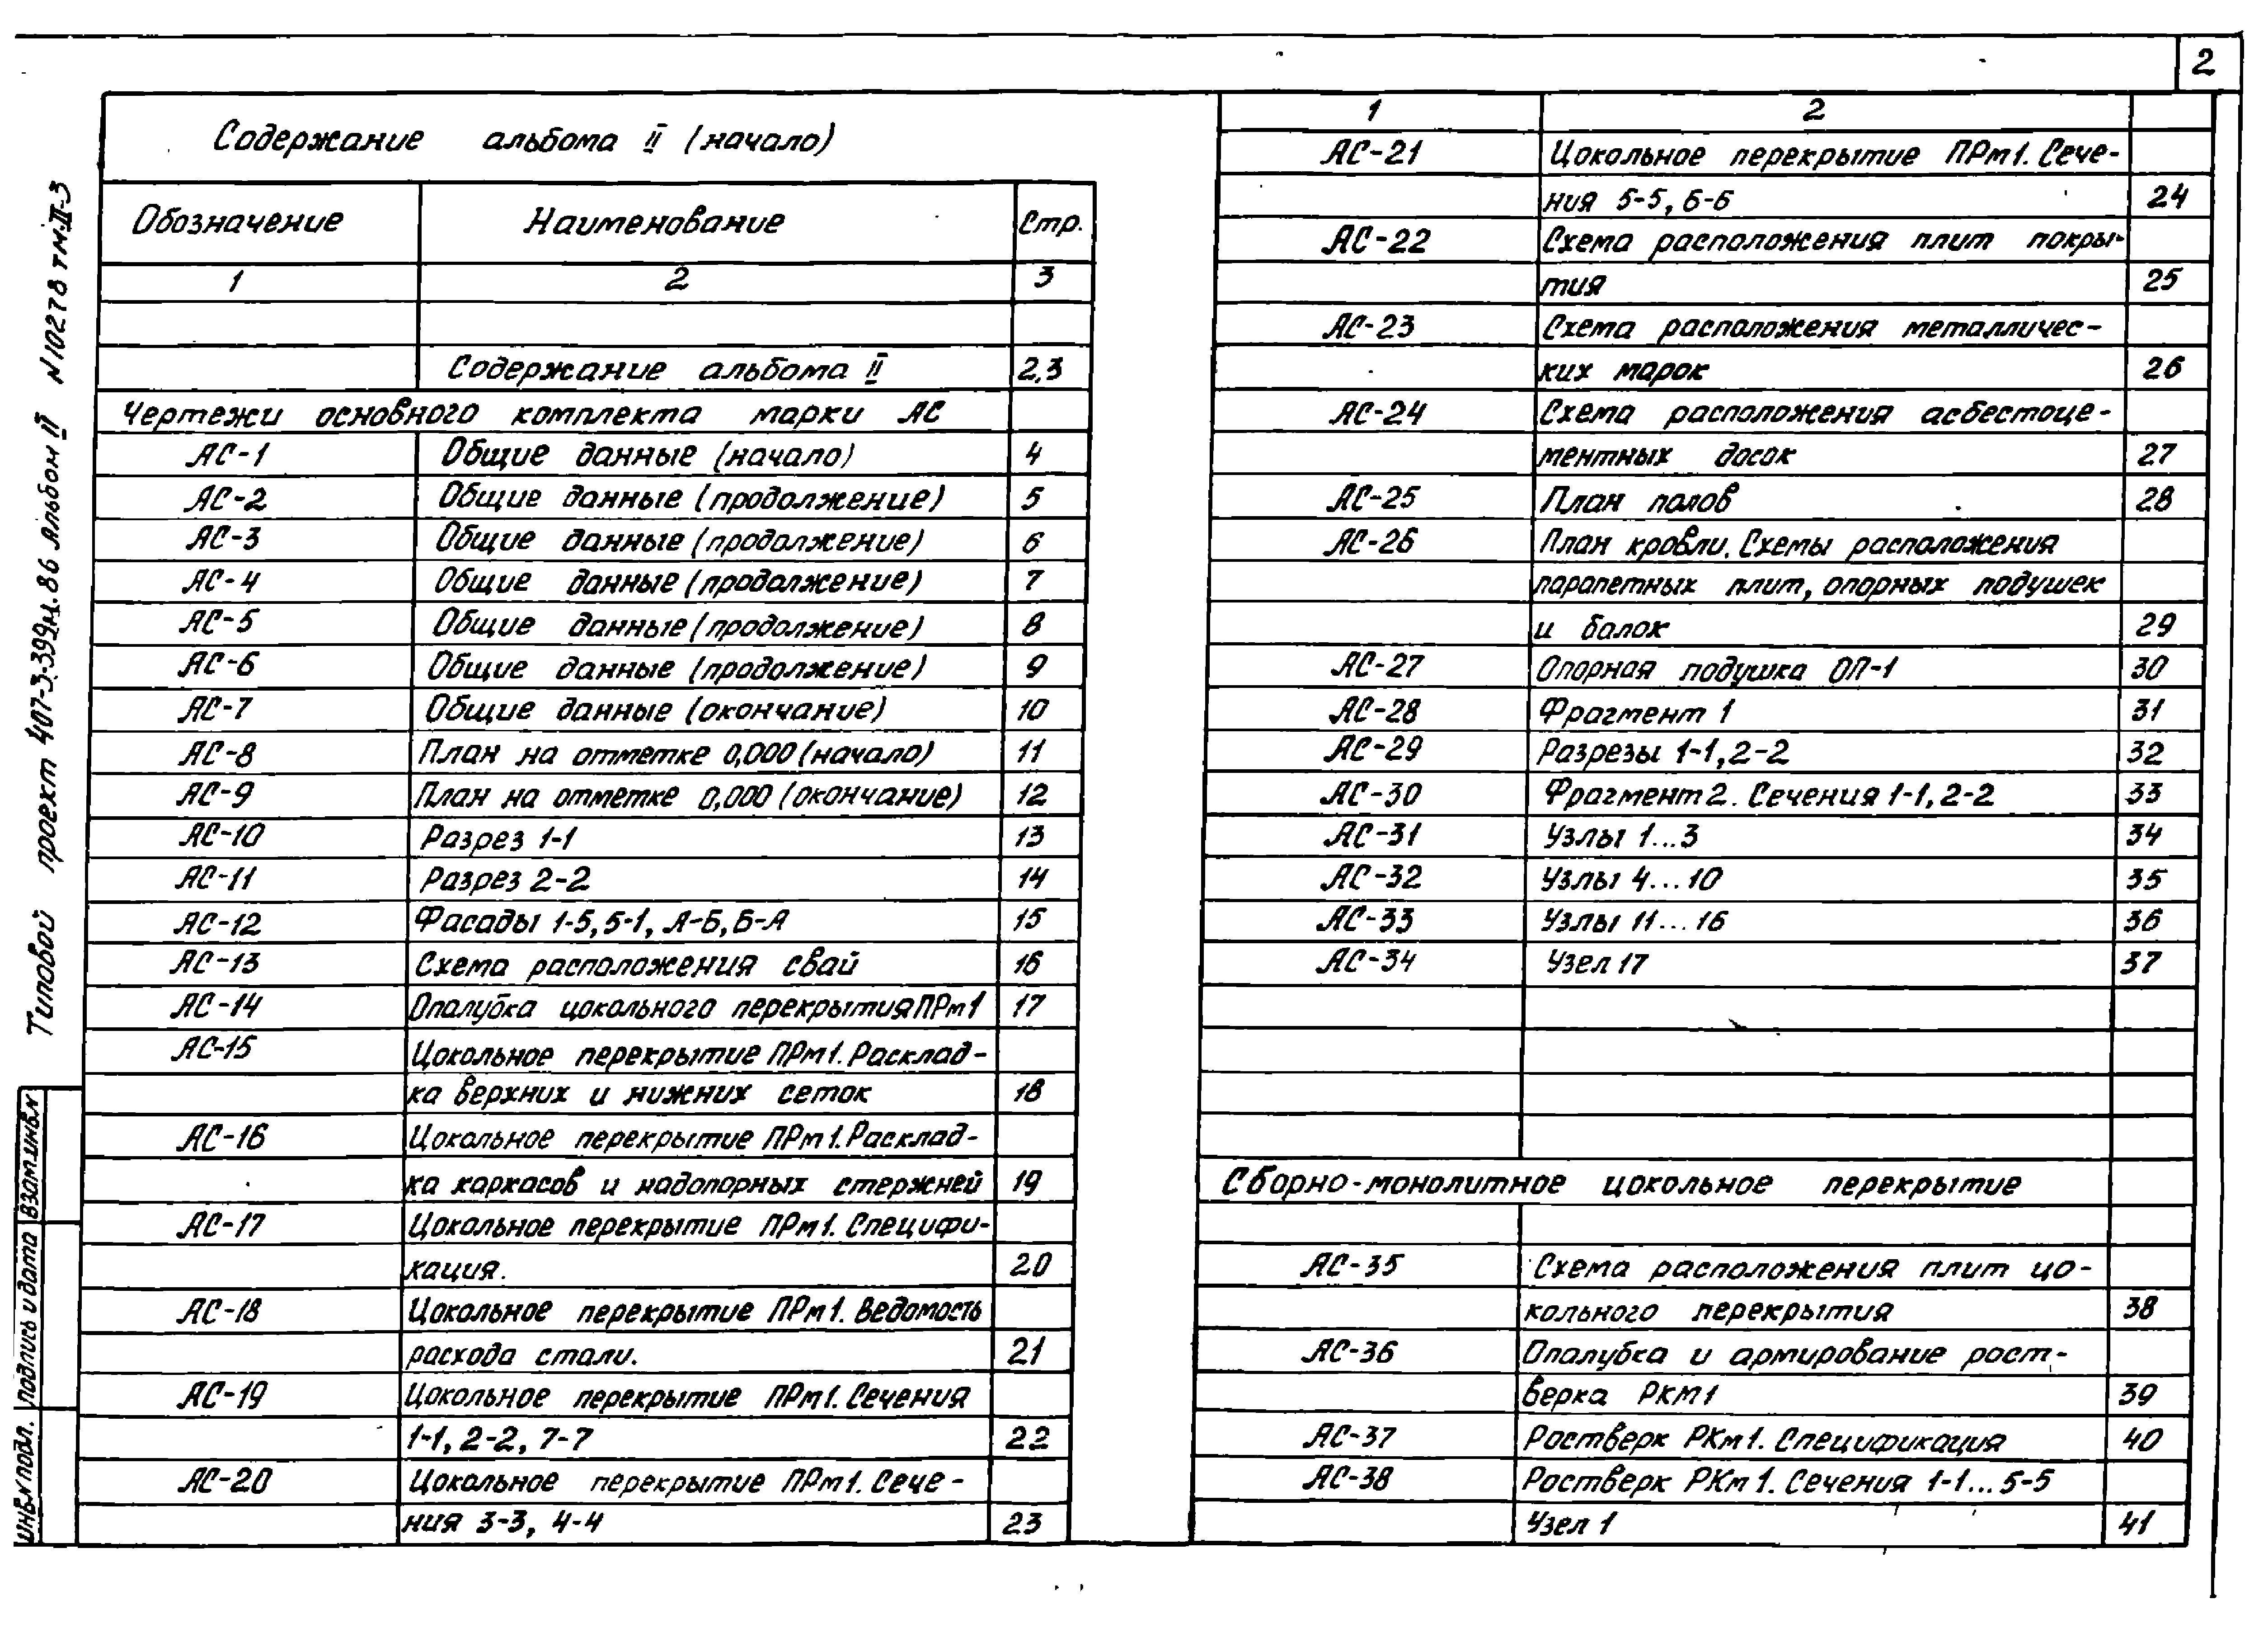 2
Содержание альбома II (начало)
Обозначение Наименование Стр.
1 2 3
Содержание альбома II 2,3
Чертежи основного комплекта марки АС
АС-1 Общие данные (начало) 4
АС-2 Общие данные (продолжение) 5
АС-3 Общие данные (продолжение) 6
АС-4 Общие данные (продолжение) 7
АС-5 Общие данные (продолжение) 8
АС-6 Общие данные (продолжение) 9
АС-7 Общие данные (окончание) 10
АС-8 План на отметке 0,000 (начало) 11
АС-9 План на отметке 0,000 (окончание) 12
АС-10 Разрез 1-1 13
АС-11 Разрез 2-2 14
АС-12 Фасады 1-5, 5-1, А-Б, Б-А 15
АС-13 Схема расположения свай 16
АС-14 Опалубка цокольного перекрытия ПРм1 17
АС-15 Цокольное перекрытие ПРм1. Расклад-
ка верхних и нижних сеток 18
АС-16 Цокольное перекрытие ПРм1. Расклад-
ка каркасов и надопорных стержней 19
АС-17 Цокольное перекрытие ПРм1. Специфи-
кация. 20
АС-18 Цокольное перекрытие ПРм1. Ведомость
расхода стали. 21
АС-19 Цокольное перекрытие ПРм1. Сечения
1-1, 2-2, 7-7 22
АС-20 Цокольное перекрытие ПРм1. Сече-
ния 3-3, 4-4 23
1 2
АС-21 Цокольное перекрытие ПРм1. Сече-
ния 5-5, 6-6 24
АС-22 Схема расположения плит покры-
тия 25
АС-23 Схема расположения металличес-
ких марок 26
АС-24 Схема расположения асбестоце-
ментных досок 27
АС-25 План полов 28
АС-26 План кровли. Схемы расположения
парапетных плит, опорных подушек
и балок 29
АС-27 Опорная подушка ОП-1 30
АС-28 Фрагмент 1 31
АС-29 Разрезы 1-1, 2-2 32
АС-30 Фрагмент 2. Сечения 1-1, 2-2 33
АС-31 Узлы 1...3 34
АС-32 Узлы 4...10 35
АС-33 Узлы 11...16 36
АС-34 Узел 17 37
Сборно-монолитное цокольное перекрытие
АС-35 Схема расположения плит цо-
кольного перекрытия 38
АС-36 Опалубка и армирование рост-
верка РКМ1 39
АС-37 Ростверк РКм1. Спецификация 40
АС-38 Ростверк РКм1. Сечения 1-1...5-5
Узел 1 41
Типовой проект 407-3-399м.86 Альбом II N10278тм-II-3
Взам.инв.N
Подпись и дата
Инв.N подл.